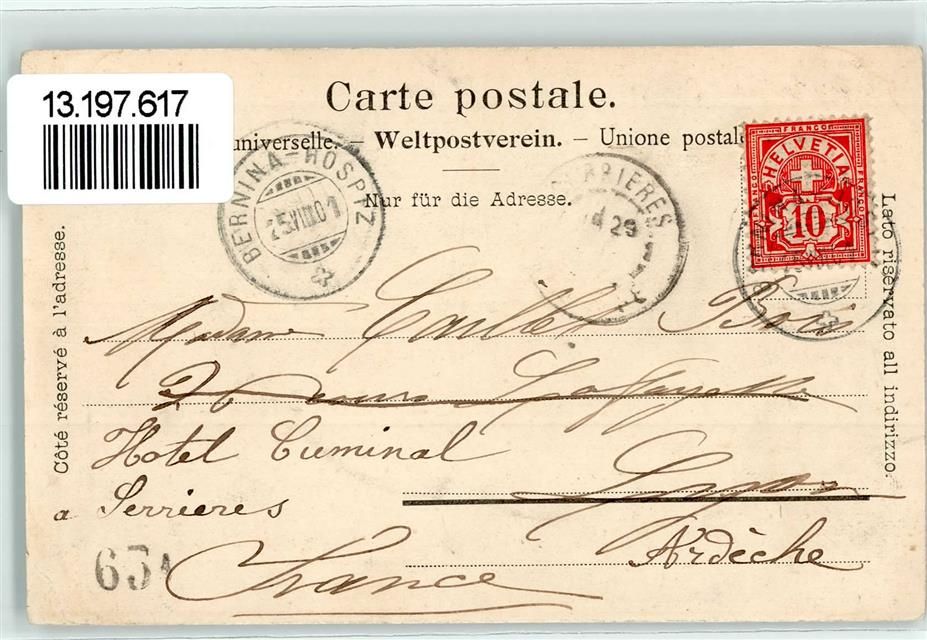 13.197.617
Carte postale.
universelle. – Weltpostverein. – Unione postale
Nur für die Adresse.
Côté réservé à l'adresse.
Lato riservato all indirizzo.
BERNINA-HOSPIZ
25.VIII.01
RRIERES
29
FRANCO
HELVETIA
FRANCO
FRANCO
10
Madame Caillet Bois
Cours Lafayette
Hotel Cuminal
Lyon
a Serrieres
Ardèche
France
63A